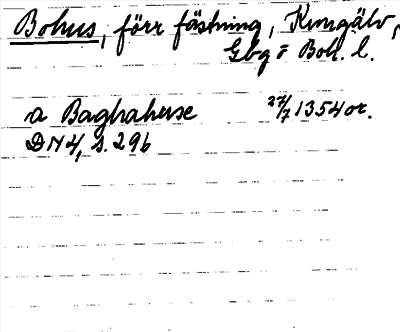 Bohus, förr fästning, Kungälv,
Gbg o Boh. l.
a Baghahuse 27/7 1354 or.
DN 4, s. 296